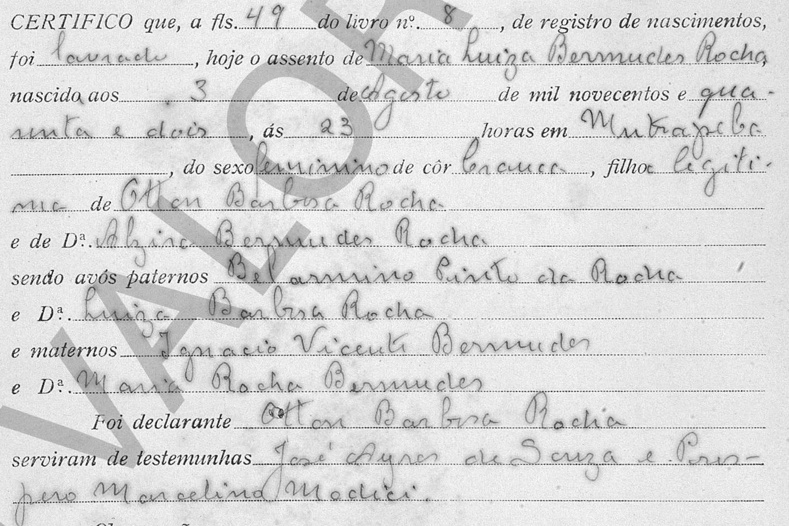 CERTIFICO que, a fls. 49 do livro nº. 8, de registro de nascimentos,
foi lavrado, hoje o assento de Maria Luiza Bermudes Rocha
nascida aos 3 de Agosto de mil novecentos e qua-
renta e dois, ás 23 horas em
, do sexo feminino de côr branca, filha legiti-
ma de Otton Barbosa Rocha
e de Dª. Alzira Bermudes Rocha
sendo avós paternos Belarmino Pinto da Rocha
e Dª. Luiza Barbosa Rocha
e maternos Ignacio Vicente Bermudes
e Dª. Maria Rocha Bermudes
Foi declarante Otton Barbosa Rocha
serviram de testemunhas José Ayres de Souza e Pros-
pero Marcelino Modici.
VALOR